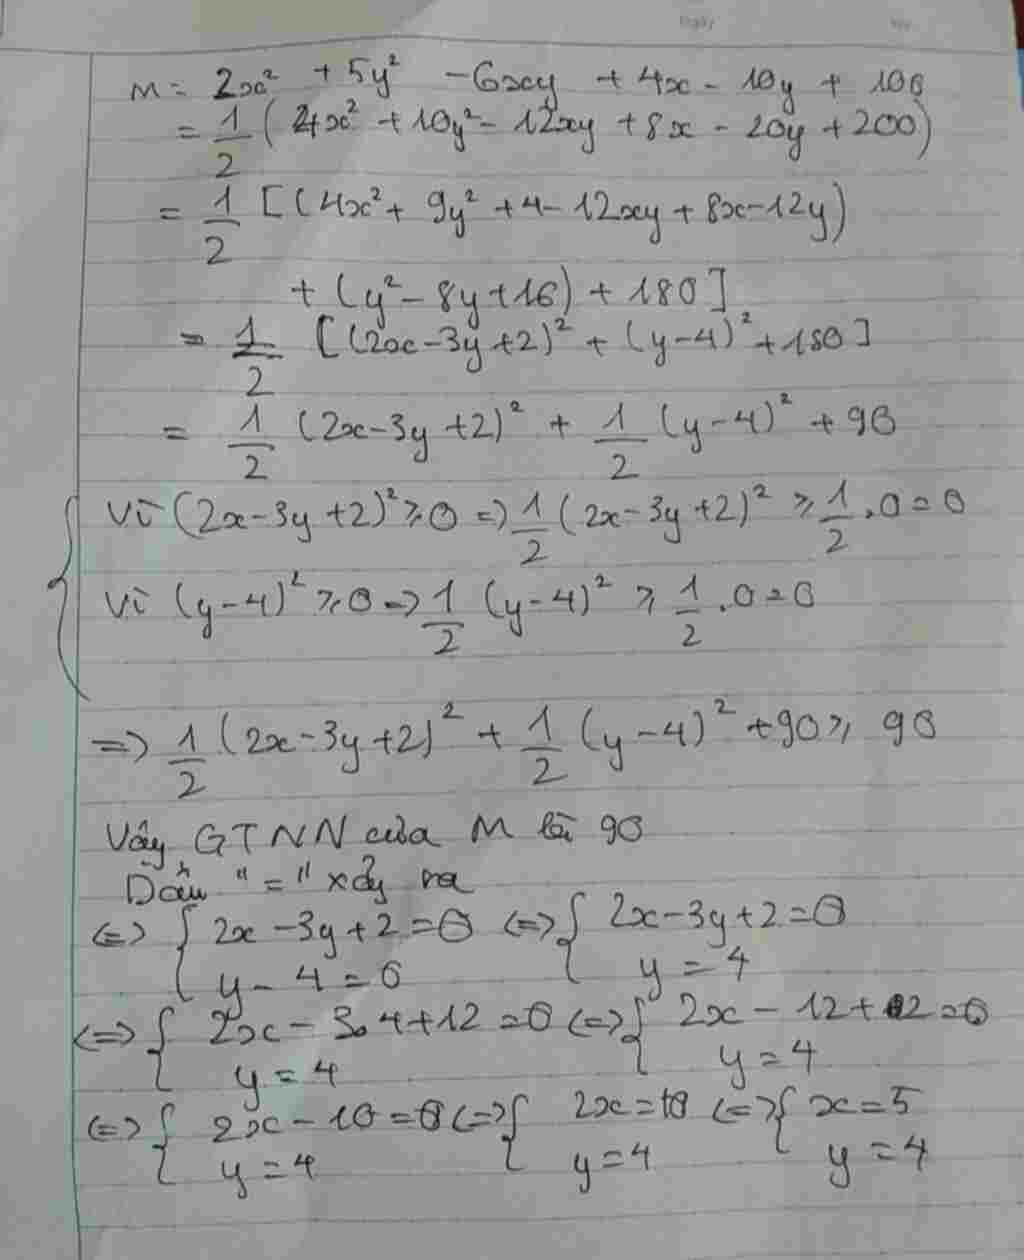 M = 2x² + 5y² - 6xy + 4x - 10y + 100
= 1/2 (4x² + 10y² - 12xy + 8x - 20y + 200)
= 1/2 [(4x² + 9y² + 4 - 12xy + 8x - 12y)
+ (y² - 8y + 16) + 180]
= 1/2 [(2x - 3y + 2)² + (y - 4)² + 180]
= 1/2 (2x - 3y + 2)² + 1/2 (y - 4)² + 90
Vì (2x - 3y + 2)² ≥ 0 => 1/2 (2x - 3y + 2)² ≥ 1/2 . 0 = 0
Vì (y - 4)² ≥ 0 => 1/2 (y - 4)² ≥ 1/2 . 0 = 0
=> 1/2 (2x - 3y + 2)² + 1/2 (y - 4)² + 90 ≥ 90
Vậy GTNN của M là 90
Dấu "=" xảy ra
<=> { 2x - 3y + 2 = 0 <=> { 2x - 3y + 2 = 0
y - 4 = 0 y = 4
<=> { 2x - 3.4 + 12 = 0 <=> { 2x - 12 + 2 = 0
y = 4 y = 4
<=> { 2x - 10 = 0 <=> { 2x = 10 <=> { x = 5
y = 4 y = 4 y = 4